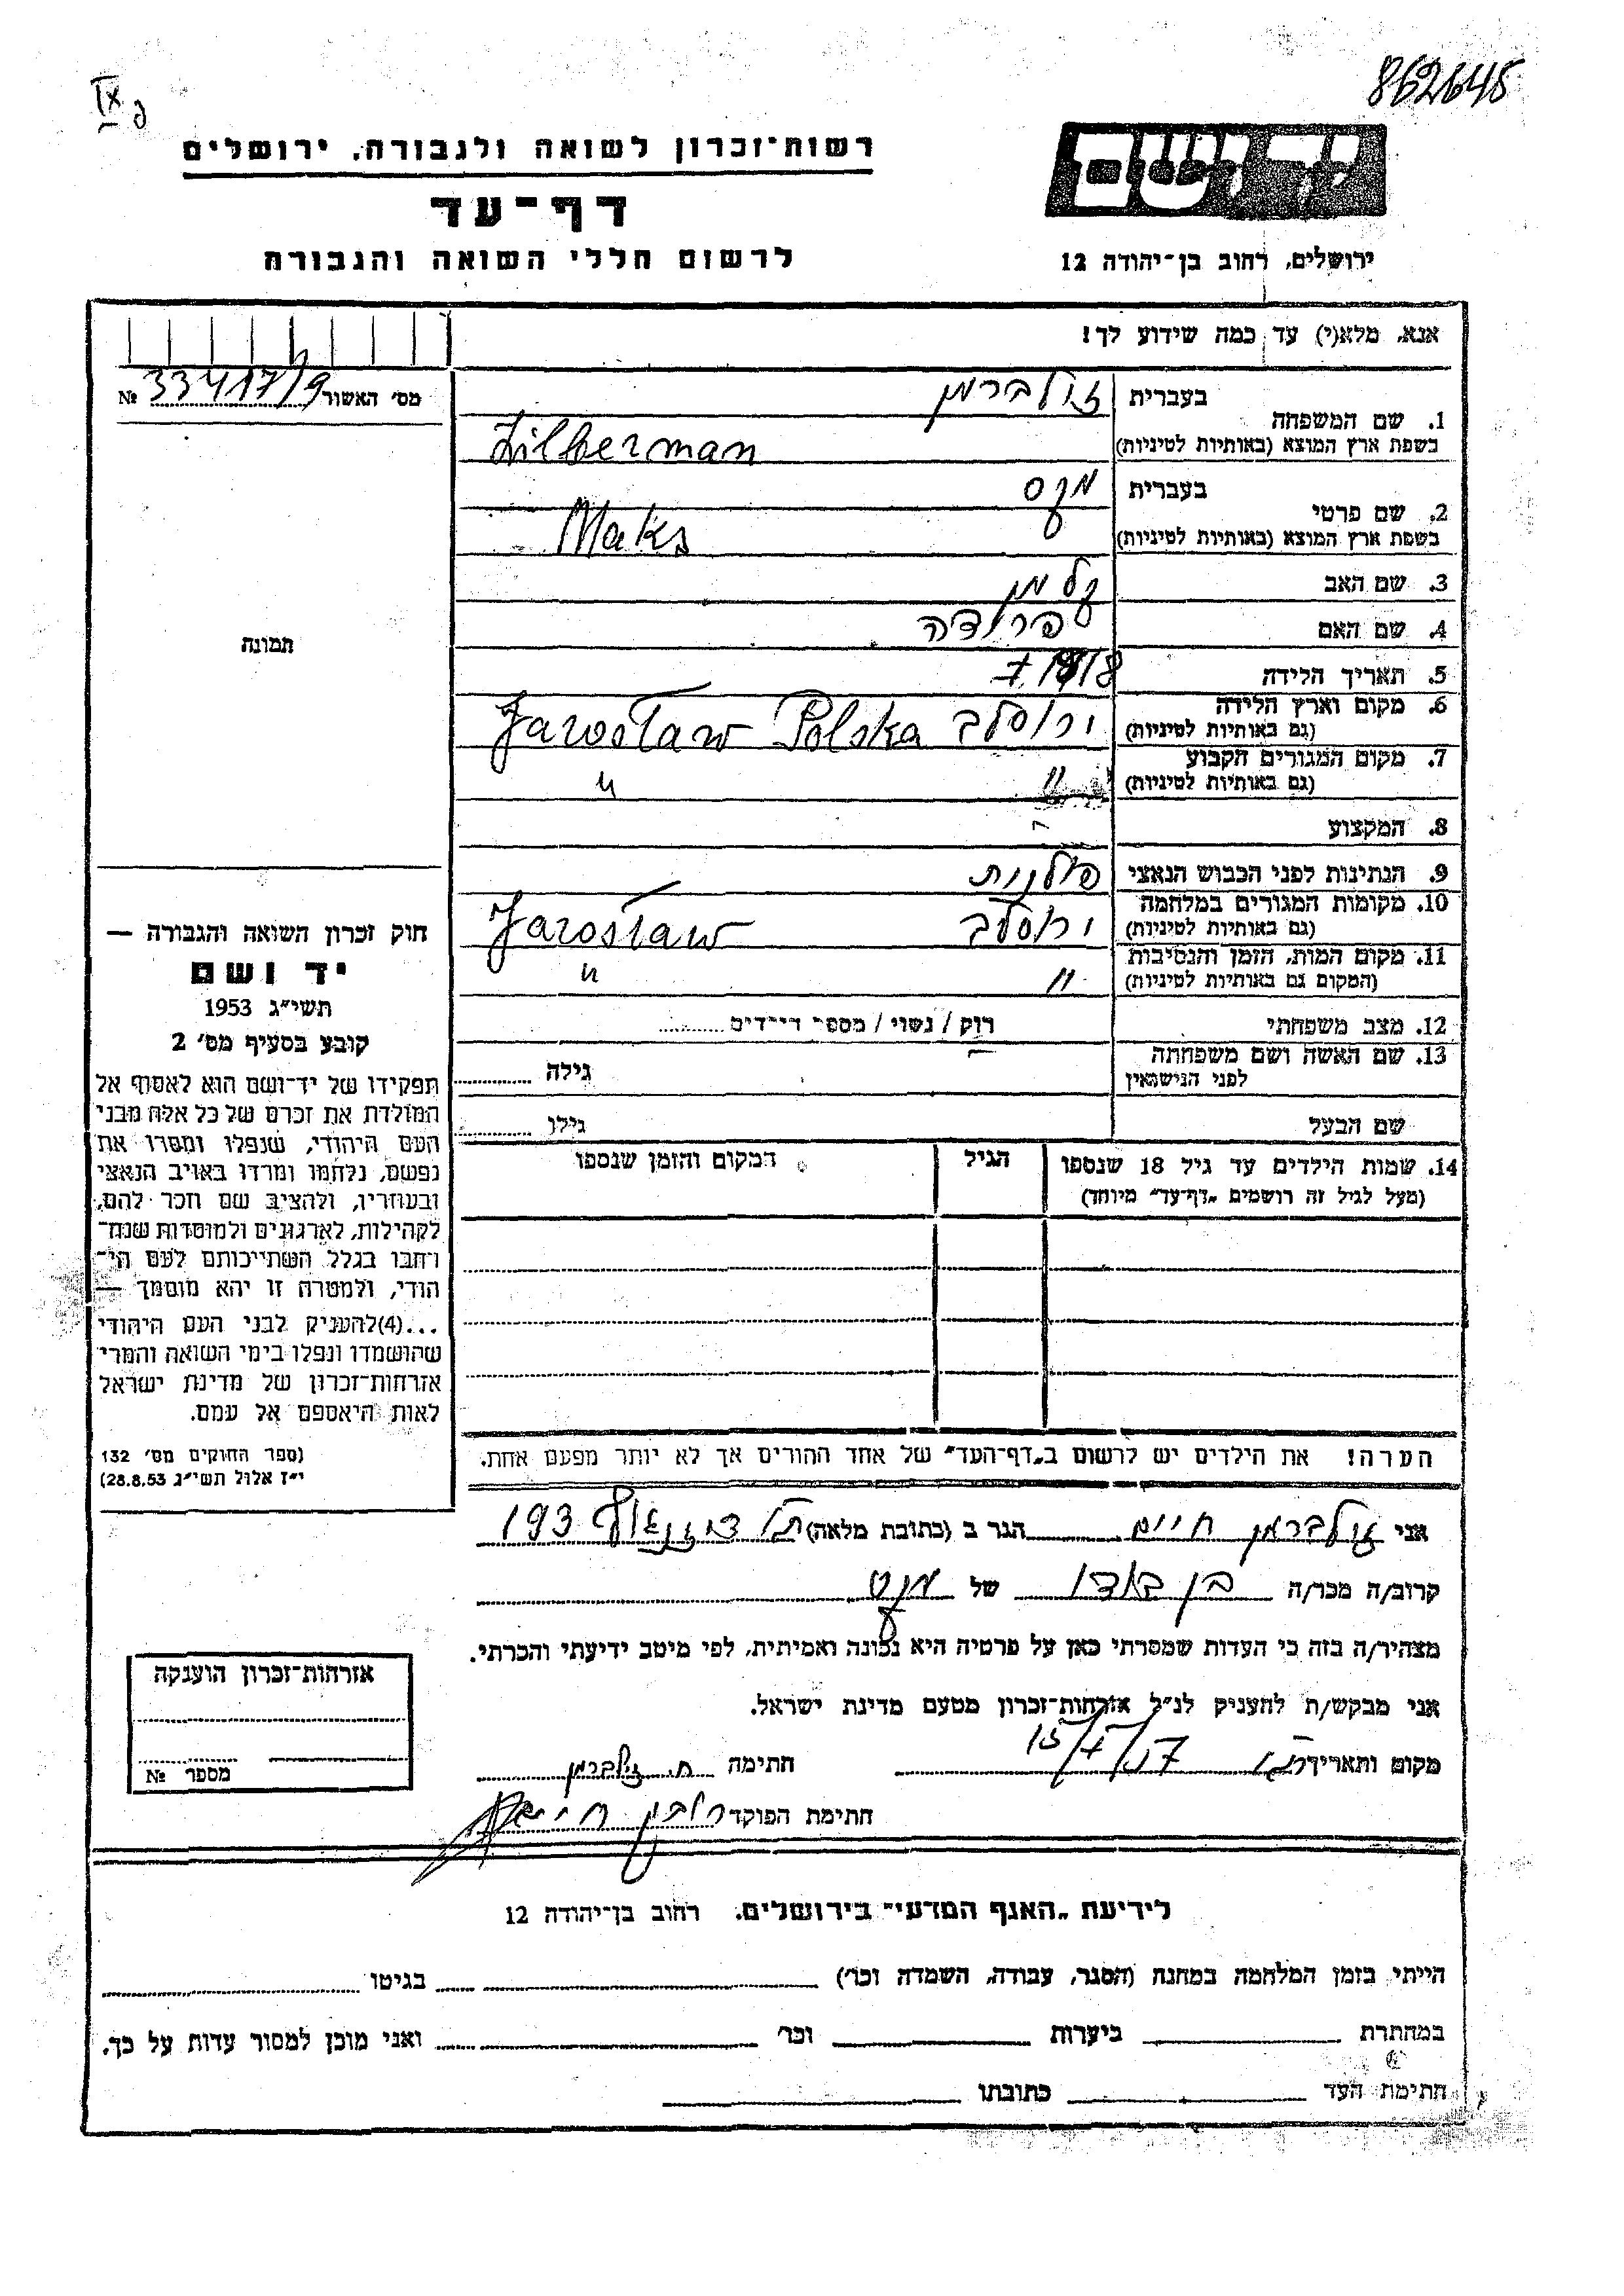 862645
IX
רשות־זכרון לשואה ולגבורה, ירושלים
יד ושם
דף־עד
לרשום חללי השואה והגבורה
ירושלים, רחוב בן־יהודה 12
אנא, מלא(י) עד כמה שידוע לך!
מס׳ האשור 33417/9 №
1. שם המשפחה
בעברית זילברמן
בשפת ארץ המוצא (באותיות לטיניות) Zilberman
2. שם פרטי
בעברית מקס
בשפת ארץ המוצא (באותיות לטיניות) Maks
3. שם האב קלמן
4. שם האם פרידה
5. תאריך הלידה
6. מקום וארץ הלידה ירוסלב Jarosław Polska
(גם באותיות לטיניות)
7. מקום המגורים הקבוע " "
(גם באותיות לטיניות)
8. המקצוע
9. הנתינות לפני הכבוש הנאצי פולנית
10. מקומות המגורים במלחמה ירוסלב Jarosław
(גם באותיות לטיניות)
11. מקום המות, הזמן והנסיבות " "
(המקום גם באותיות לטיניות)
12. מצב משפחתי רוק / נשוי / מספר הילדים
13. שם האשה ושם משפחתה
לפני הנישואין גילה
שם הבעל גילו
14. שמות הילדים עד גיל 18 שנספו
(מעל לגיל זה רושמים „דף־עד" מיוחד)
הגיל
המקום והזמן שנספו
תמונה
חוק זכרון השואה והגבורה —
יד ושם
תשי״ג 1953
קובע בסעיף מס׳ 2
תפקידו של יד־ושם הוא לאסוף אל
המולדת את זכרם של כל אלה מבני
העם היהודי, שנפלו ומסרו את
נפשם, נלחמו ומרדו באויב הנאצי
ובעוזריו, ולהציב שם וזכר להם,
לקהילות, לארגונים ולמוסדות שנח־
רחבו בגלל השתייכותם לעם הי־
הודי, ולמטרה זו יהא מוסמך —
...(4)להעניק לבני העם היהודי
שהושמדו ונפלו בימי השואה והמרי
אזרחות־זכרון של מדינת ישראל
לאות היאספם אל עמם.
(ספר החוקים מס׳ 132
י״ז אלול תשי״ג 28.8.53)
הערה! את הילדים יש לרשום ב„דף־העד" של אחד ההורים אך לא יותר מפעם אחת.
אני זילברמן חיים הגר ב (כתובת מלאה) ת״א דיזנגוף 193
קרוב/ה מכר/ה בן דודו של מקס
מצהיר/ה בזה כי העדות שמסרתי כאן על פרטיה היא נכונה ואמיתית, לפי מיטב ידיעתי והכרתי.
אני מבקש/ת להעניק לנ״ל אזרחות־זכרון מטעם מדינת ישראל.
מקום ותאריך ת״א חתימה ח. זילברמן
חתימת הפוקד
אזרחות־זכרון הוענקה
מספר №
לידיעת „האגף המדעי" בירושלים, רחוב בן־יהודה 12
הייתי בזמן המלחמה במחנה (הסגר, עבודה, השמדה וכו׳) בגיטו
במחתרת ביערות וכו׳ ואני מוכן למסור עדות על כך.
חתימת העד כתובתו